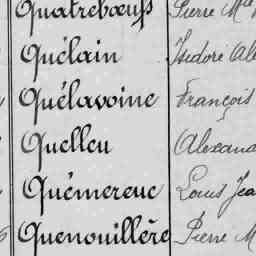 Quatrebœufs Pierre Me
Quélain Isidore Ale
Quélavoine François
Quelleu Alexand
Quémereuc Louis Jea
Quenouillère Pierre M